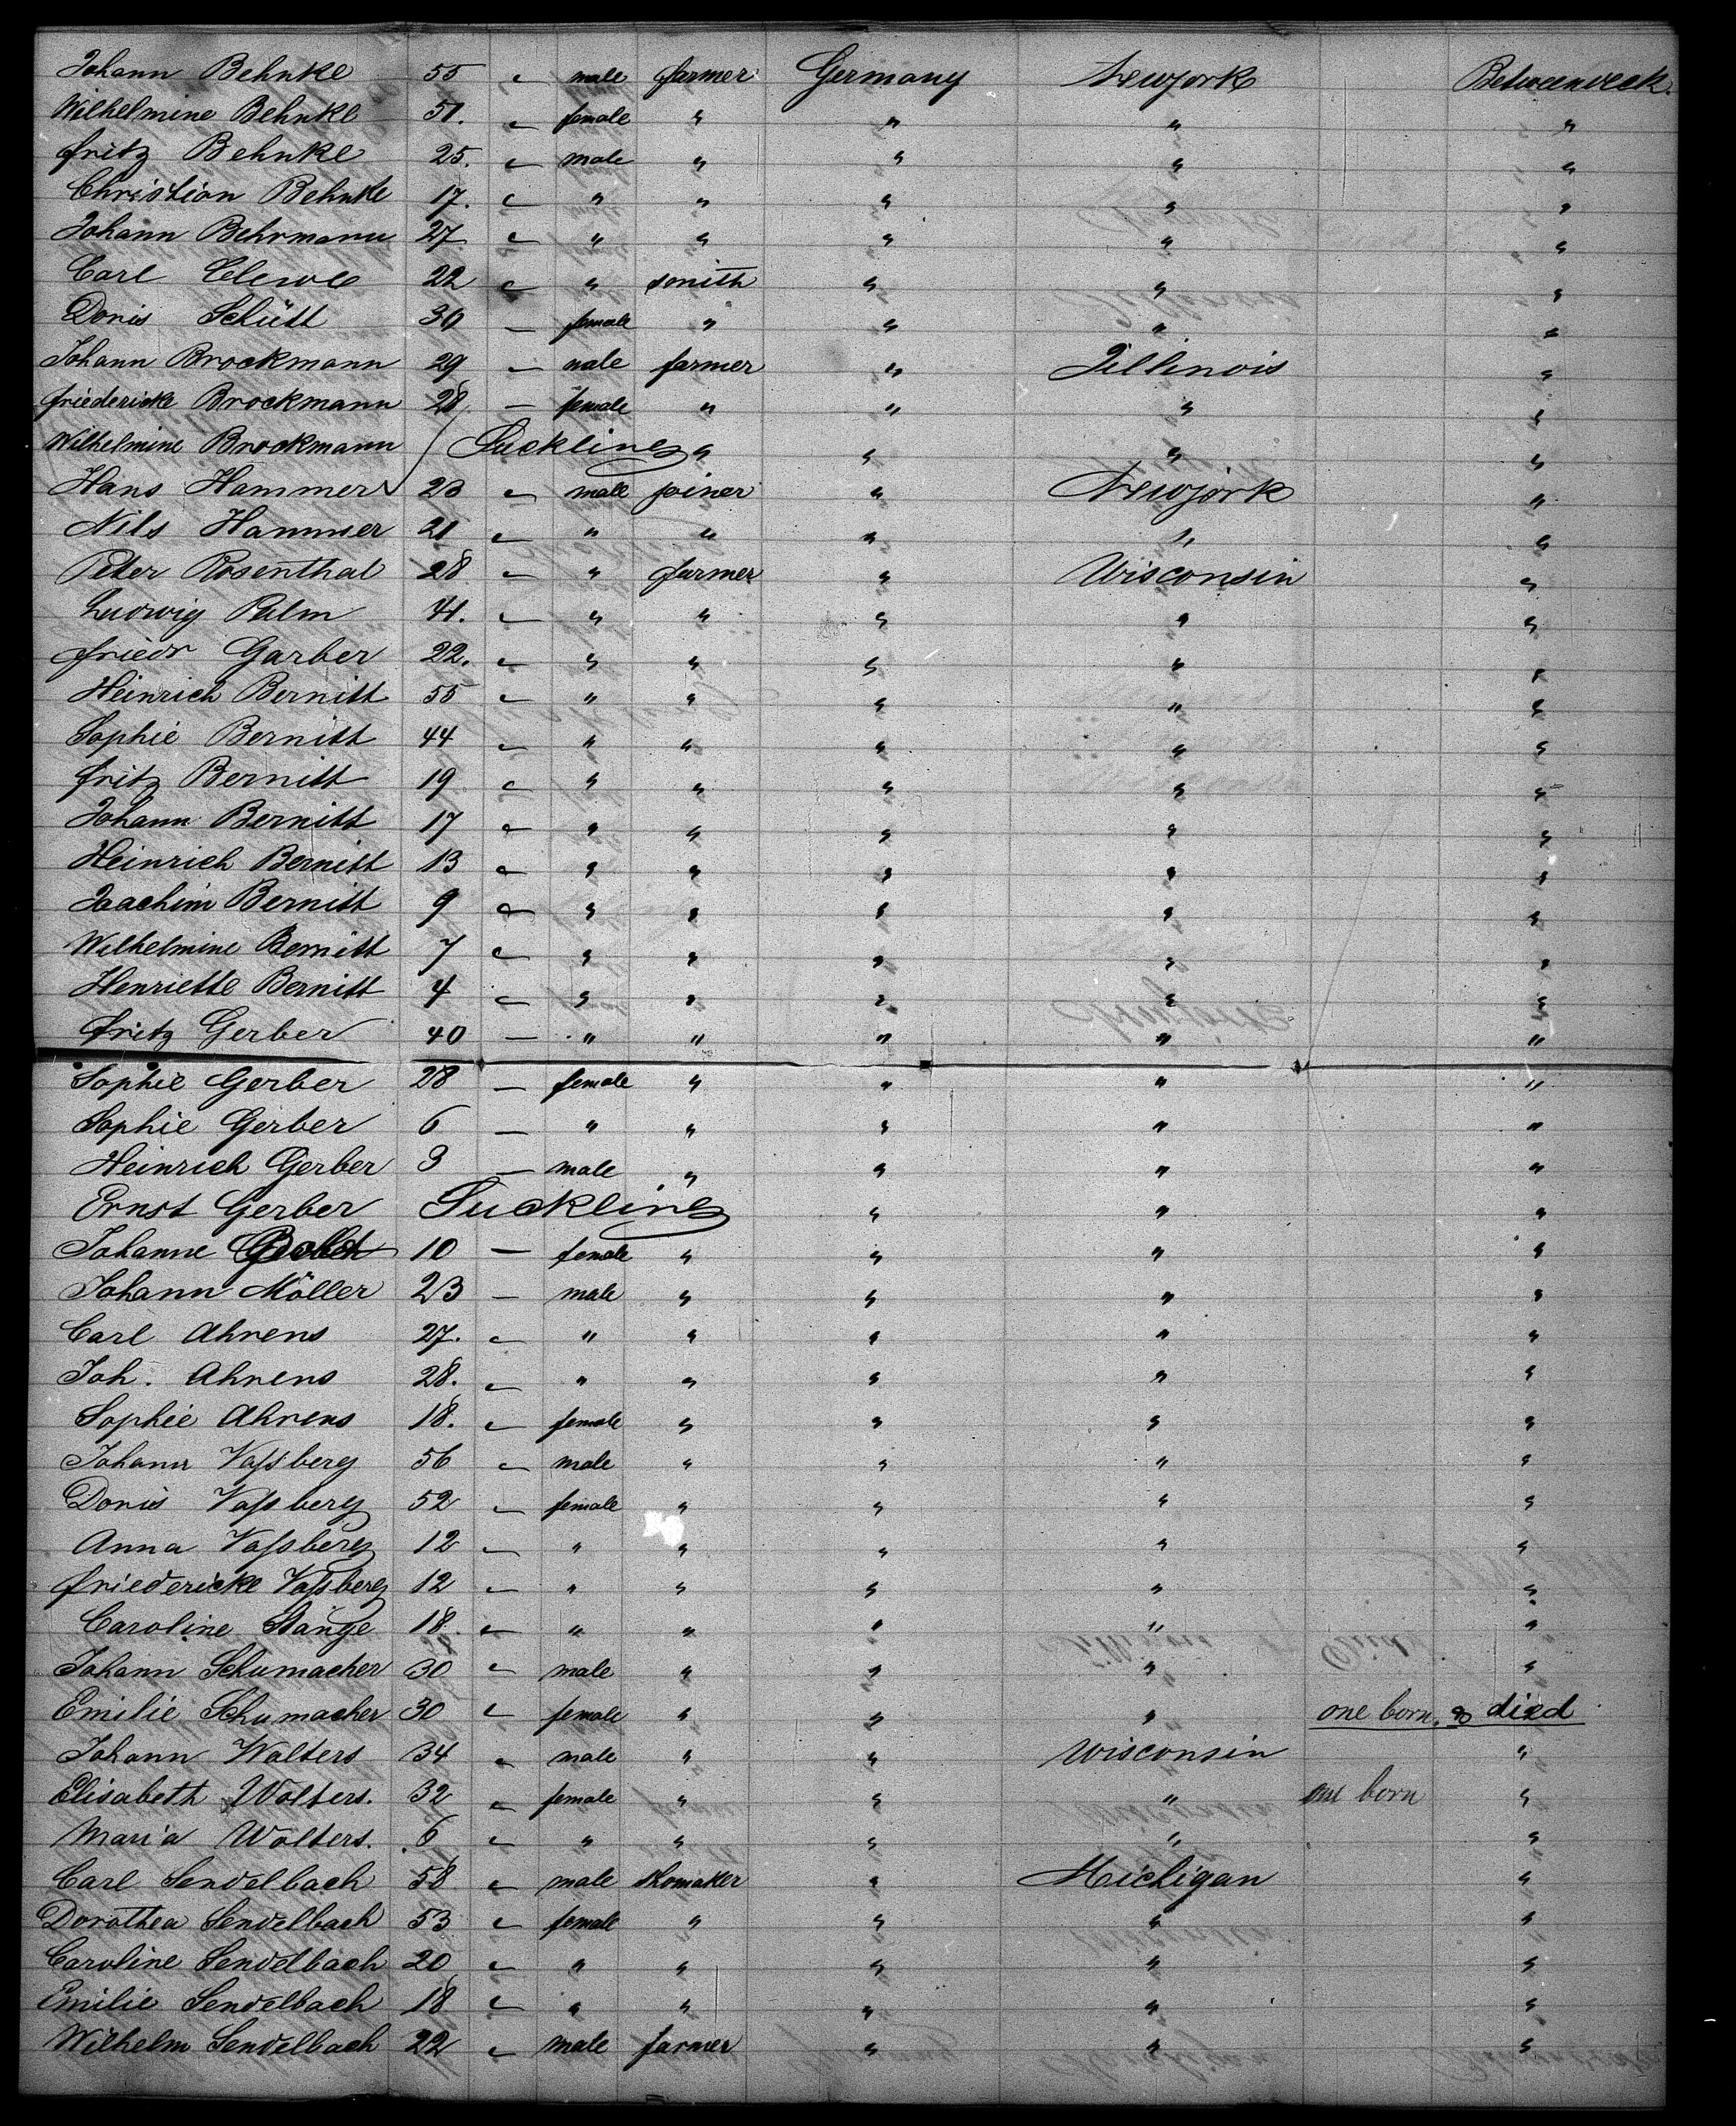 Johann Behnke 55 " male farmer Germany Newjork Betweendeck.
Wilhelmine Behnke 51. " female " " " "
fritz Behnke 25. " male " " " "
Christian Behnke 17. " " " " " "
Johann Behrmann 27 " " " " " "
Carl 22 " " smith " " "
Doris Schütt 30 — female " " " "
Johann Brockmann 29 — male farmer " Jillinois "
friedericke Brockmann 28 — female " " " "
Wilhelmine Brockmann Suckling " " " "
Hans Hammer 23 " male joiner " Newjork "
Nils Hammer 21 " " " " " "
Peter Rosenthal 28 " " farmer " Wisconsin "
Ludwig Palm 41. " " " " " "
friedr Garber 22. " " " " " "
Heinrich Bernitt 55 " " " " " "
Sophie Bernitt 44 " " " " " "
fritz Bernitt 19 " " " " " "
Johann Bernitt 17 " " " " " "
Heinrich Bernitt 13 " " " " " "
Joachim Bernitt 9 " " " " " "
Wilhelmine Bernitt 7 " " " " " "
Henriette Bernitt 4 " " " " " "
fritz Gerber 40 — " " " " "
Sophie Gerber 28 — female " " " "
Sophie Gerber 6 — " " " " "
Heinrich Gerber 3 — male " " " "
Ernst Gerber Suckling " " "
Johanne 10 — female " " " "
Johann Möller 23 — male " " " "
Carl Ahrens 27. " " " " " "
Joh. Ahrens 28. " " " " " "
Sophie Ahrens 18. " female " " " "
Johann Vaſsberg 56 " male " " " "
Doris Vaſsberg 52 " female " " " "
Anna Vaſsberg 12 " " " " " "
friedericke Vaſsberg 12 " " " " " "
Caroline Stange 18 " " " " " "
Johann Schumacher 30 " male " " " "
Emilie Schumacher 30 " female " " " one born. & died
Johann Wolters 34 " male " " Wisconsin "
Elisabeth Wolters. 32 " female " " " one born "
Maria Wolters. 6 " " " " " "
Carl Sendelbach 58 " male shomaker " Michigan "
Dorothea Sendelbach 53 " female " " " "
Caroline Sendelbach 20 " " " " " "
Emilie Sendelbach 18 " " " " " "
Wilhelm Sendelbach 22 " male farmer " " "